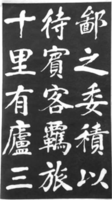 鄙之委積以
待賓客羈旅
十里有廬三